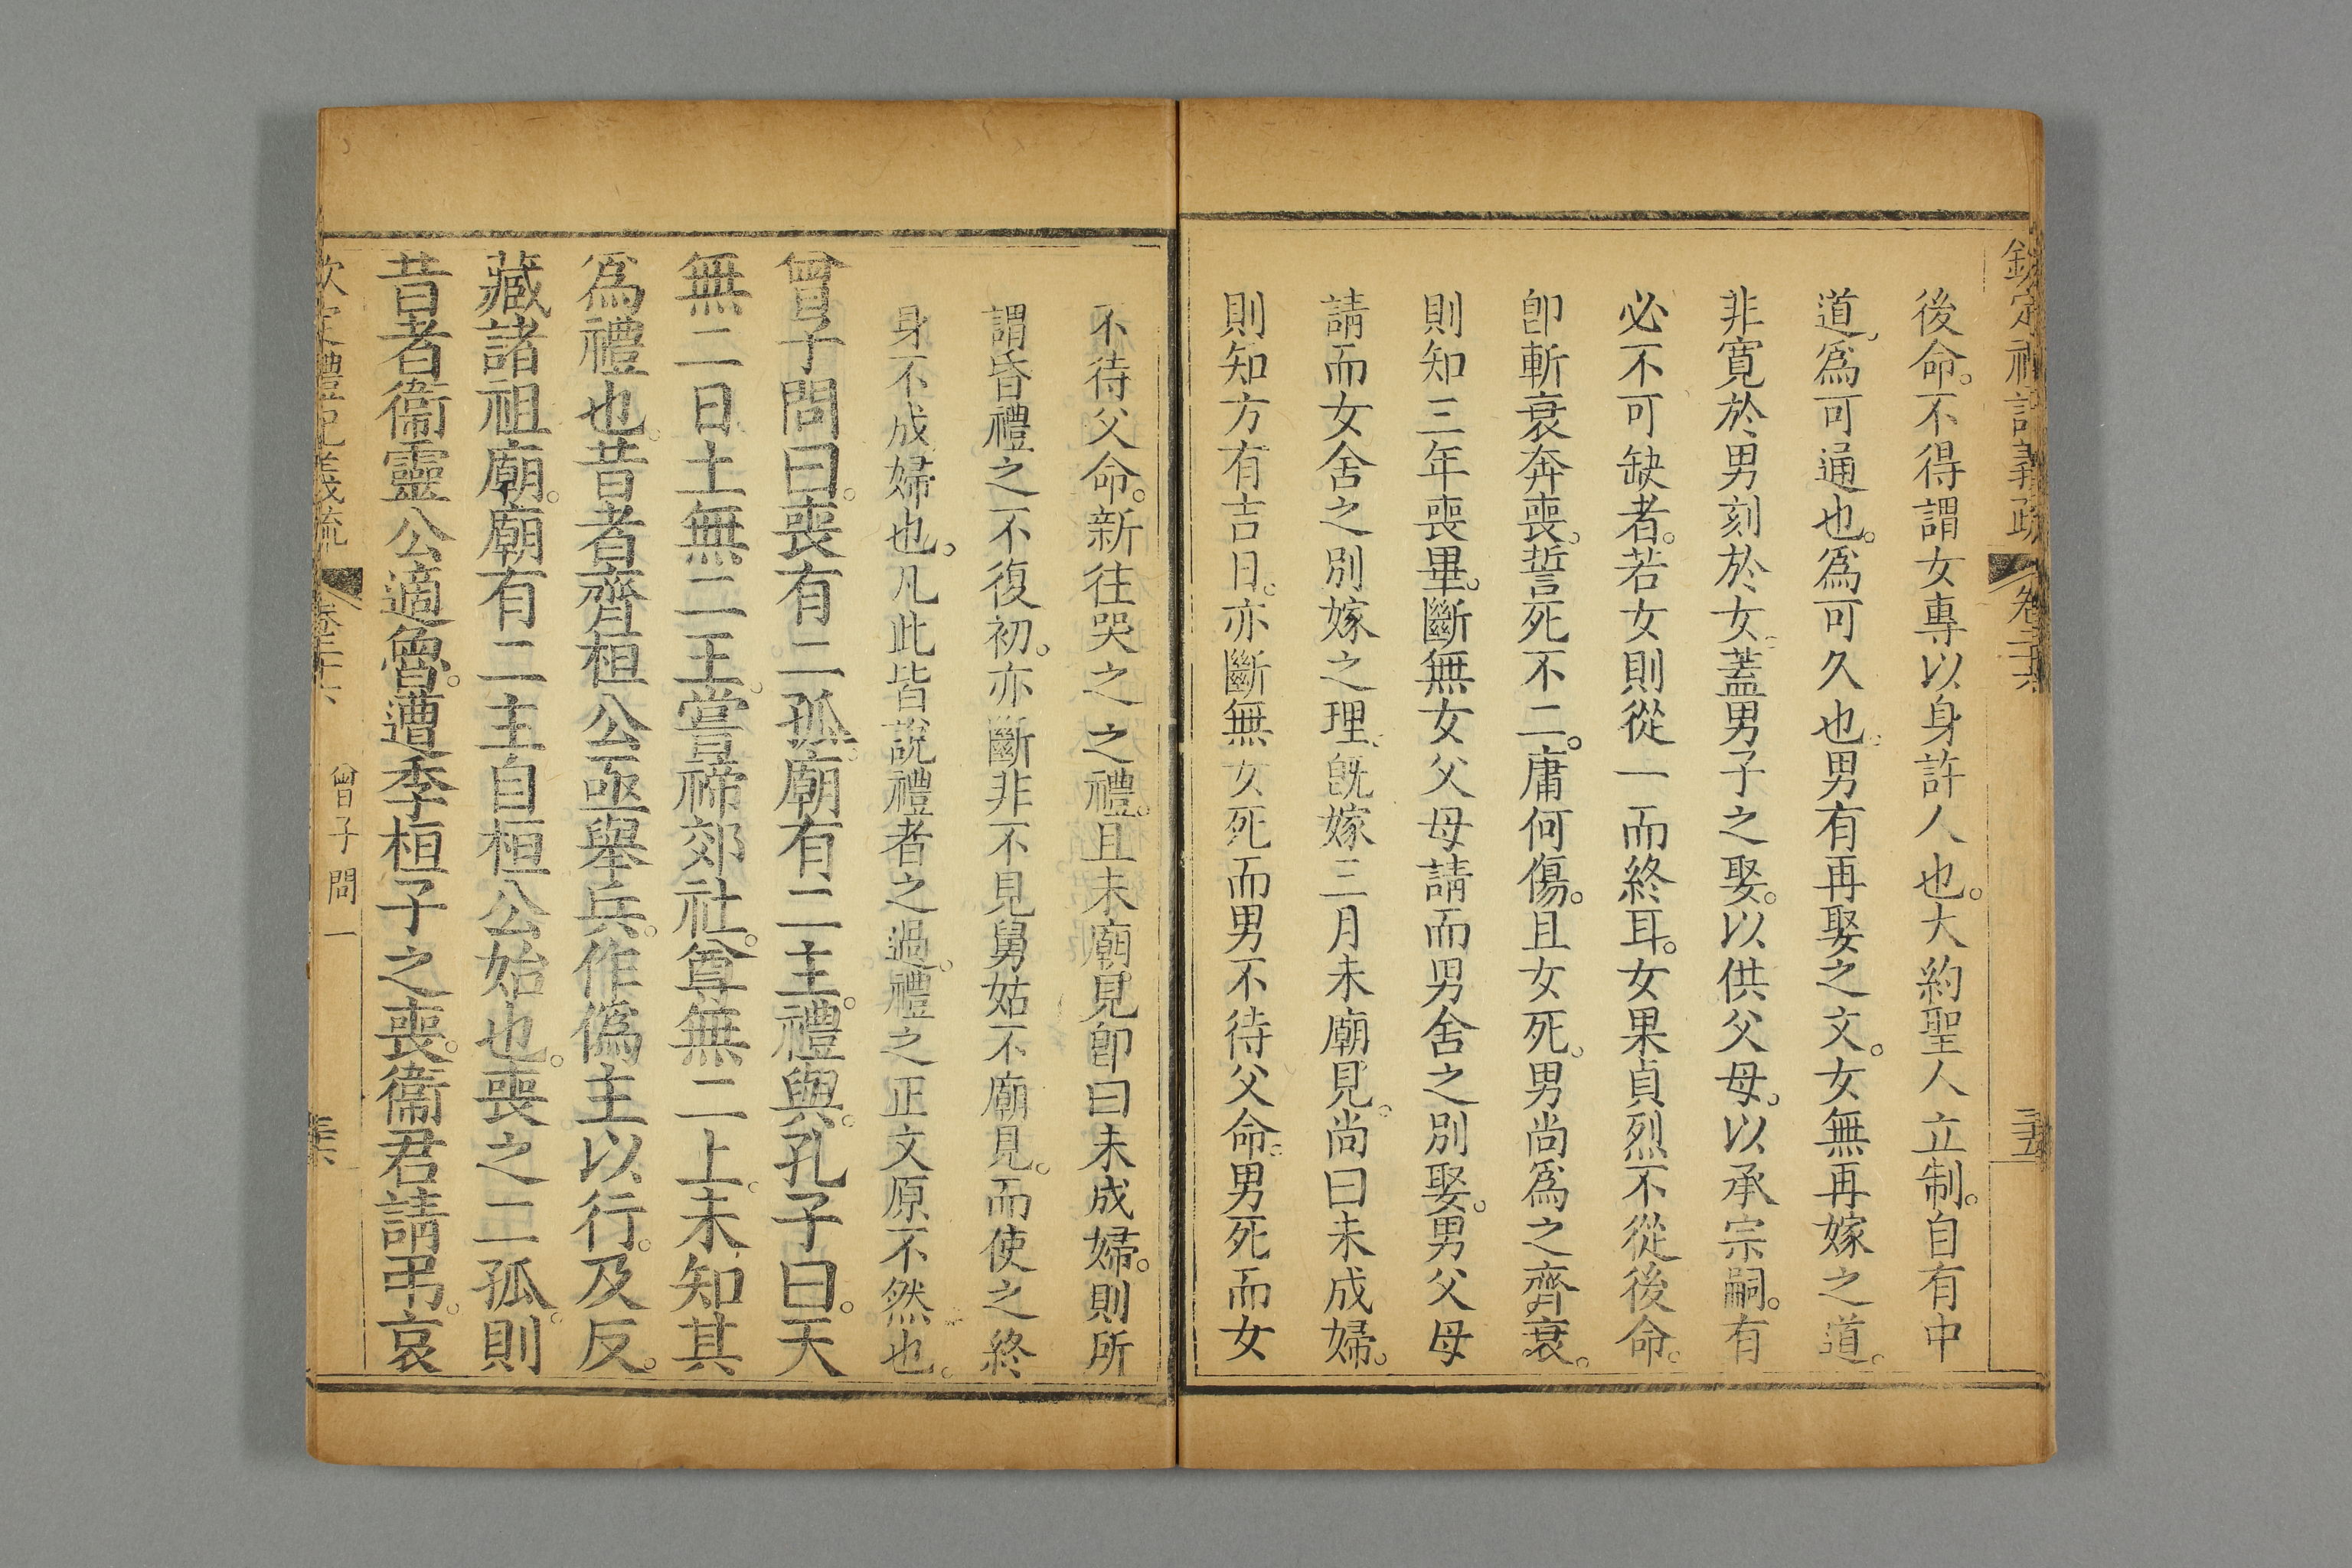 欽定禮記義疏 卷二十六 三五
後命。不得謂女專以身許人也。大約聖人立制。自有中
道。爲可通也。爲可久也。男有再娶之文。女無再嫁之道。
非寬於男刻於女。蓋男子之娶。以供父母。以承宗嗣。有
必不可缺者。若女則從一而終耳。女果貞烈不從後命。
卽斬衰奔喪。誓死不二。庸何傷。且女死。男尚爲之齊衰。
則知三年喪畢。斷無女父母請而男舍之別娶。男父母
請而女舍之別嫁之理。旣嫁三月未廟見。尚曰未成婦。
則知方有吉日。亦斷無女死而男不待父命。男死而女
不待父命。新往哭之之禮。且未廟見卽曰未成婦。則所
謂昏禮之不復初。亦斷非不見舅姑不廟見。而使之終
身不成婦也。凡此皆說禮者之過。禮之正文原不然也。
曾子問曰。喪有二孤。廟有二主。禮與。孔子曰。天
無二日土無二王。嘗禘郊社。尊無二上。未知其
爲禮也。昔者齊桓公亟舉兵。作僞主以行。及反。
藏諸祖廟。廟有二主自桓公始也。喪之二孤。則
昔者衞靈公適魯。遭季桓子之喪。衞君請弔。哀
欽定禮記義疏 卷二十六 曾子問一 三六